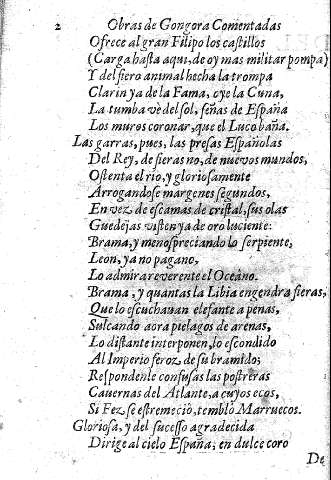 2 Obras de Gongora Comentadas
Ofrece al gran Filipo los castillos
(Carga hasta aqui, de oy mas militar pompa)
Y del fiero animal hecha la trompa
Clarin ya de la Fama, oye la Cuna,
La tumba ve del sol, señas de España
Los muros coronar, que el Luco baña.
Las garras, pues, las presas Españolas
Del Rey, de fieras no, de nuevos mundos,
Ostenta el rio, y gloriosamente
Arrogandose margenes segundos,
En vez de escamas de cristal, sus olas
Guedejas visten ya de oro luciente:
Brama, y menospreciando lo serpiente,
Leon, ya no pagano,
Lo admira reverente el Oceano.
Brama, y quantas la Libia engendra fieras,
Que lo escuchavan elefante apenas,
Sulcando aora pielagos de arenas,
Lo distante interponen, lo escondido
Al Imperio feroz de su bramido;
Respondenle confusas las postreras
Cavernas del Atlante, a cuyos ecos,
Si Fez se estremeciò, temblò Marruecos.
Gloriosa, y del sucesso agradecida
Dirige al cielo España; en dulce coro
De